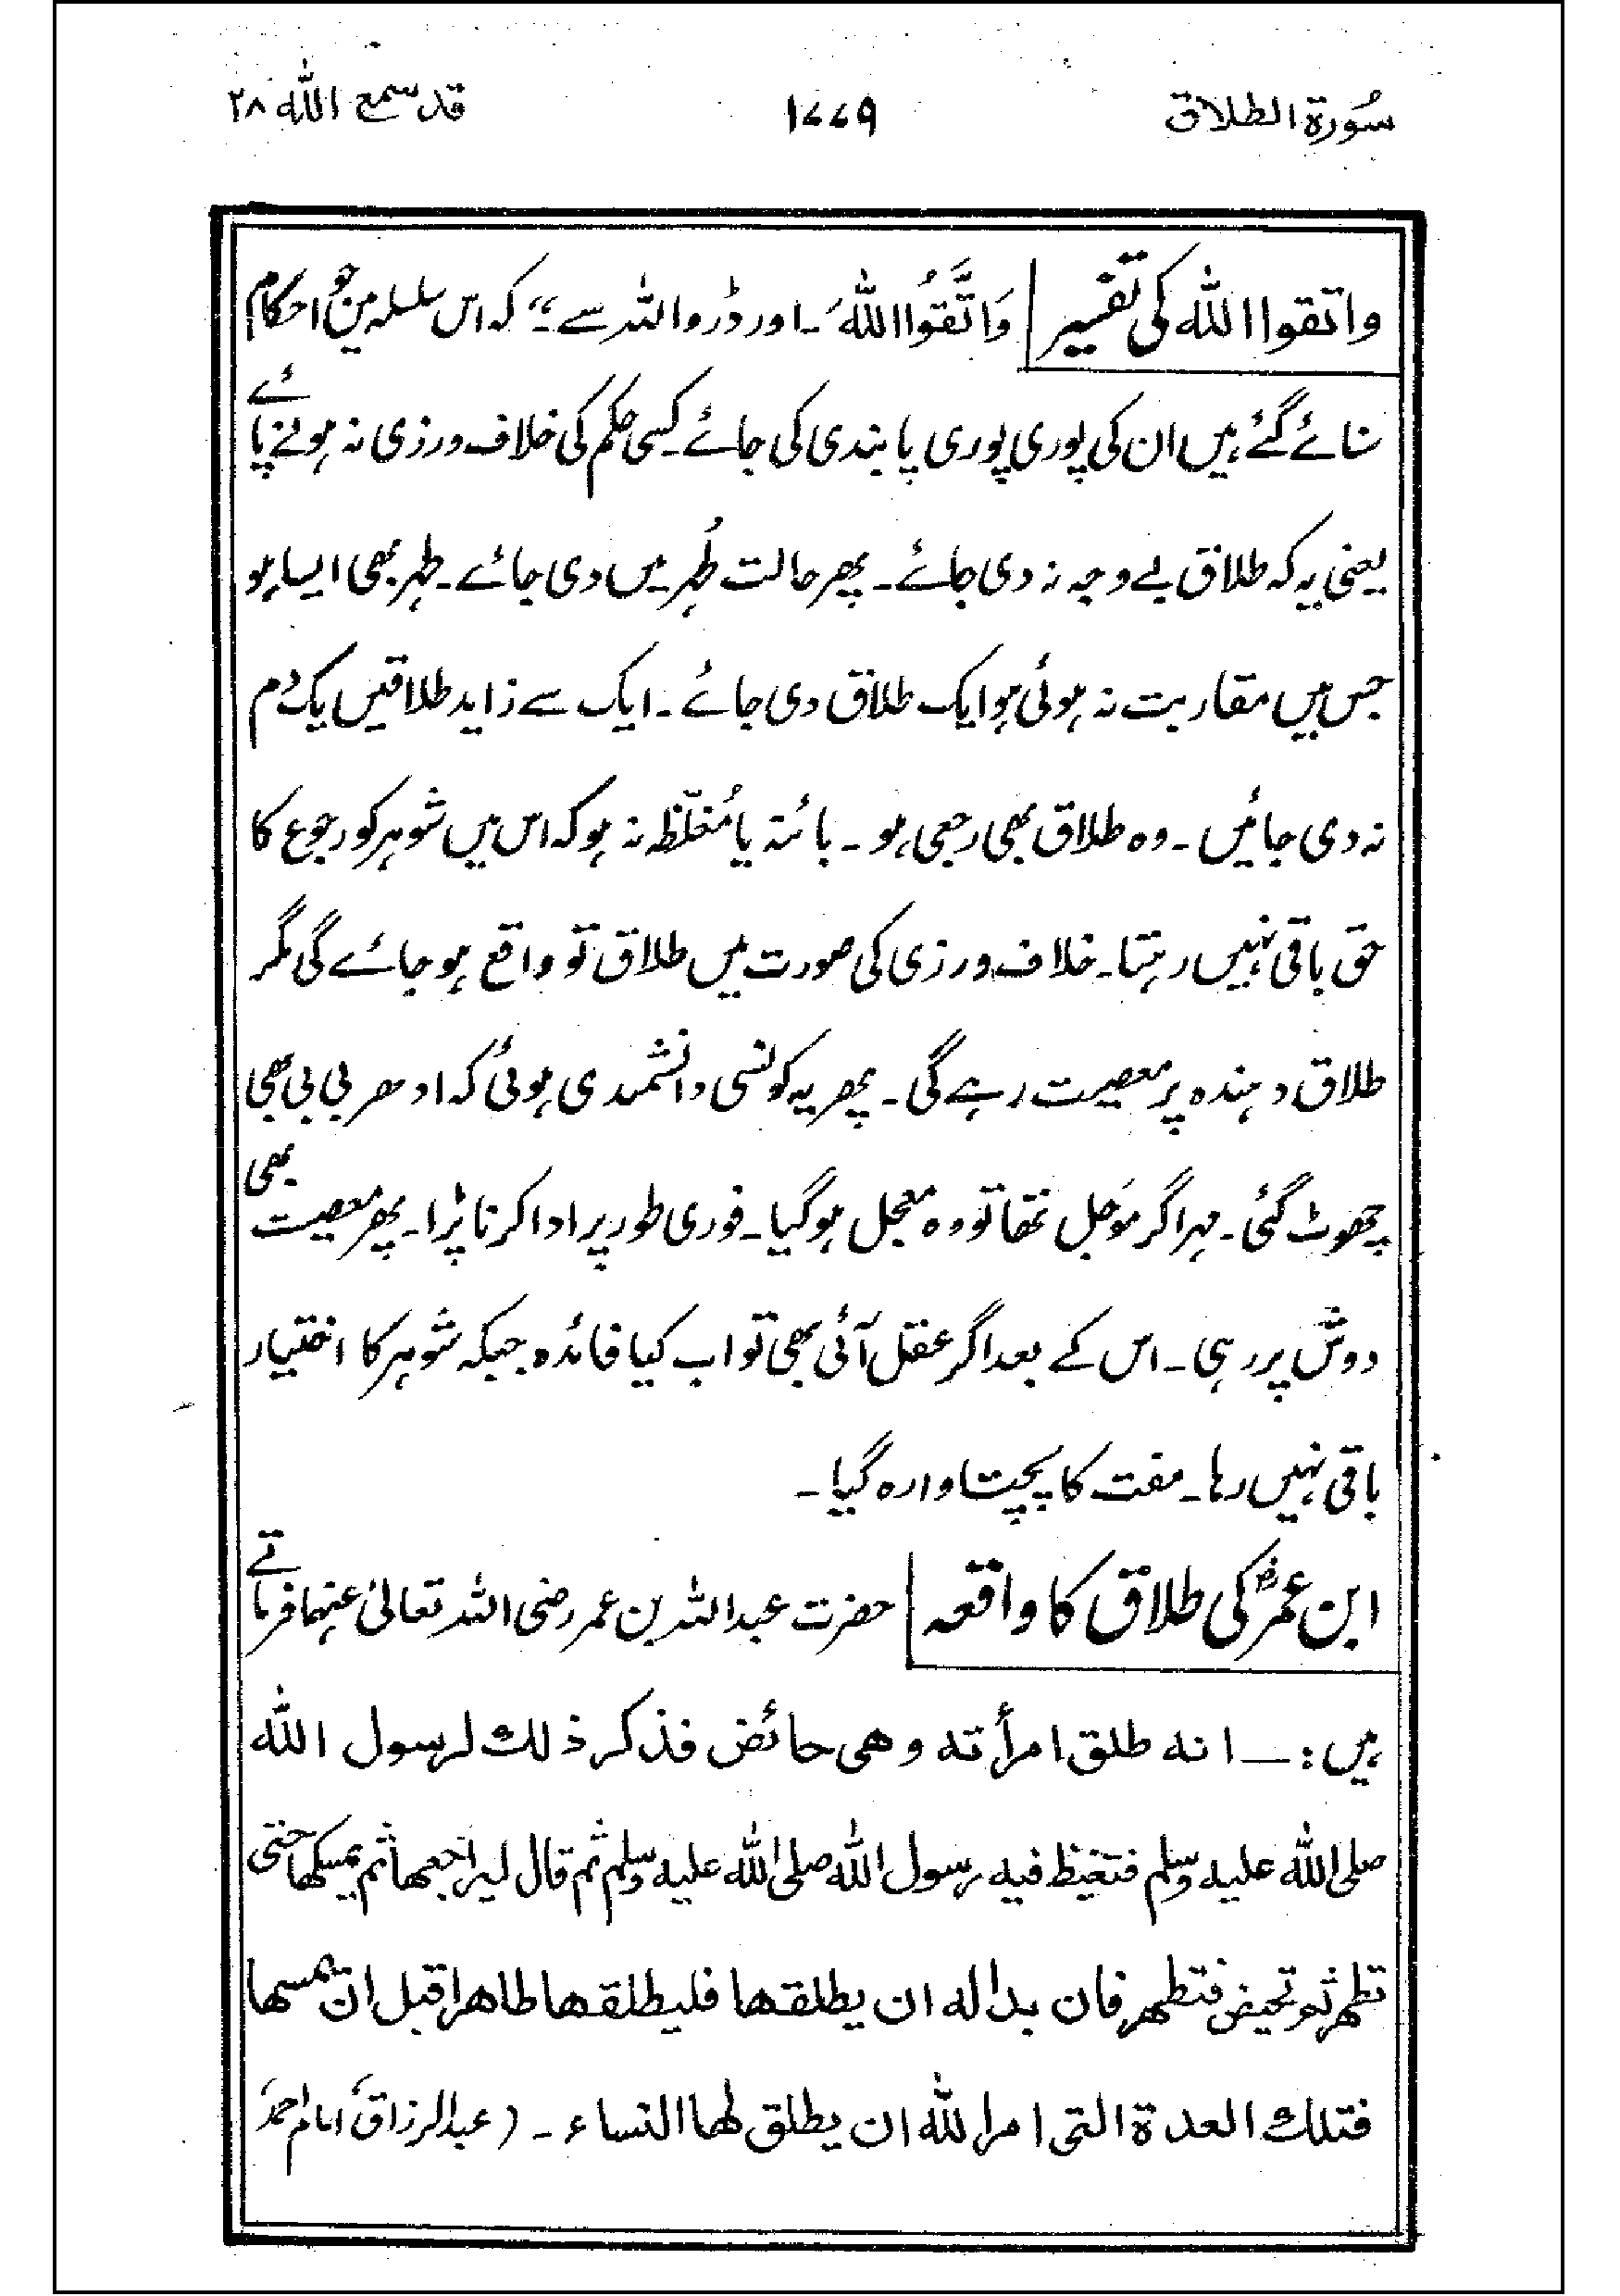 سُورۃ الطلاق ۱۷۷۹ قد سمع اللّٰہ ۲۸
واتقوا اللّٰہ کی تفسیر وَاتَّقُوا اللّٰہَ ۔ اور ڈرو اللہ سے ؞ کہ اس سلسلہ میں جو احکام
سنائے گئے ہیں ان کی پوری پوری پابندی کی جائے ۔ کسی حکم کی خلاف ورزی نہ ہونے پائے
یعنی یہ کہ طلاق بے وجہ نہ دی جائے ۔ پھر حالت طُہر میں دی جائے ۔ طہر بھی ایسا ہو
جس میں مقاربت نہ ہوئی ہو ایک طلاق دی جائے ۔ ایک سے زاید طلاقیں یک دم
نہ دی جائیں ۔ وہ طلاق بھی رجعی ہو ۔ بائنہ یا مُغلّظہ نہ ہو کہ اس میں شوہر کو رجوع کا
حق باقی نہیں رہتا ۔ خلاف ورزی کی صورت میں طلاق تو واقع ہو جائے گی مگر
طلاق دہندہ پر معصیت رہے گی ۔ پھر یہ کونسی دانشمندی ہوئی کہ ادھر بی بی بھی
چھوٹ گئی ۔ مہر اگر مؤجل تھا تو وہ معجل ہو گیا ۔ فوری طور پر ادا کرنا پڑا ۔ پھر معصیت بھی
دوش پر رہی ۔ اس کے بعد اگر عقل آئی بھی تو اب کیا فائدہ جبکہ شوہر کا اختیار
باقی نہیں رہا ۔ مفت کا پچتاوا رہ گیا ۔
ابن عمرؓ کی طلاق کا واقعہ حضرت عبداللہ بن عمر رضی اللہ تعالیٰ عنہما فرماتے
ہیں : ــ انه طلق امرأته وهی حائض فذکر ذلك لرسول اللّٰه
صلی اللّٰه علیه وسلم فتغیظ فیه رسول اللّٰه صلی اللّٰه علیه وسلم ثم قال لیراجعها ثم یمسکها حتی
تطهر ثم تحیض فتطهر فان بدا له ان یطلقها فلیطلقها طاهرا قبل ان یمسها
فتلك العدة التی امر اللّٰه ان یطلق لها النساء ۔ ( عبدالرزاقؒ امام احمدؒ